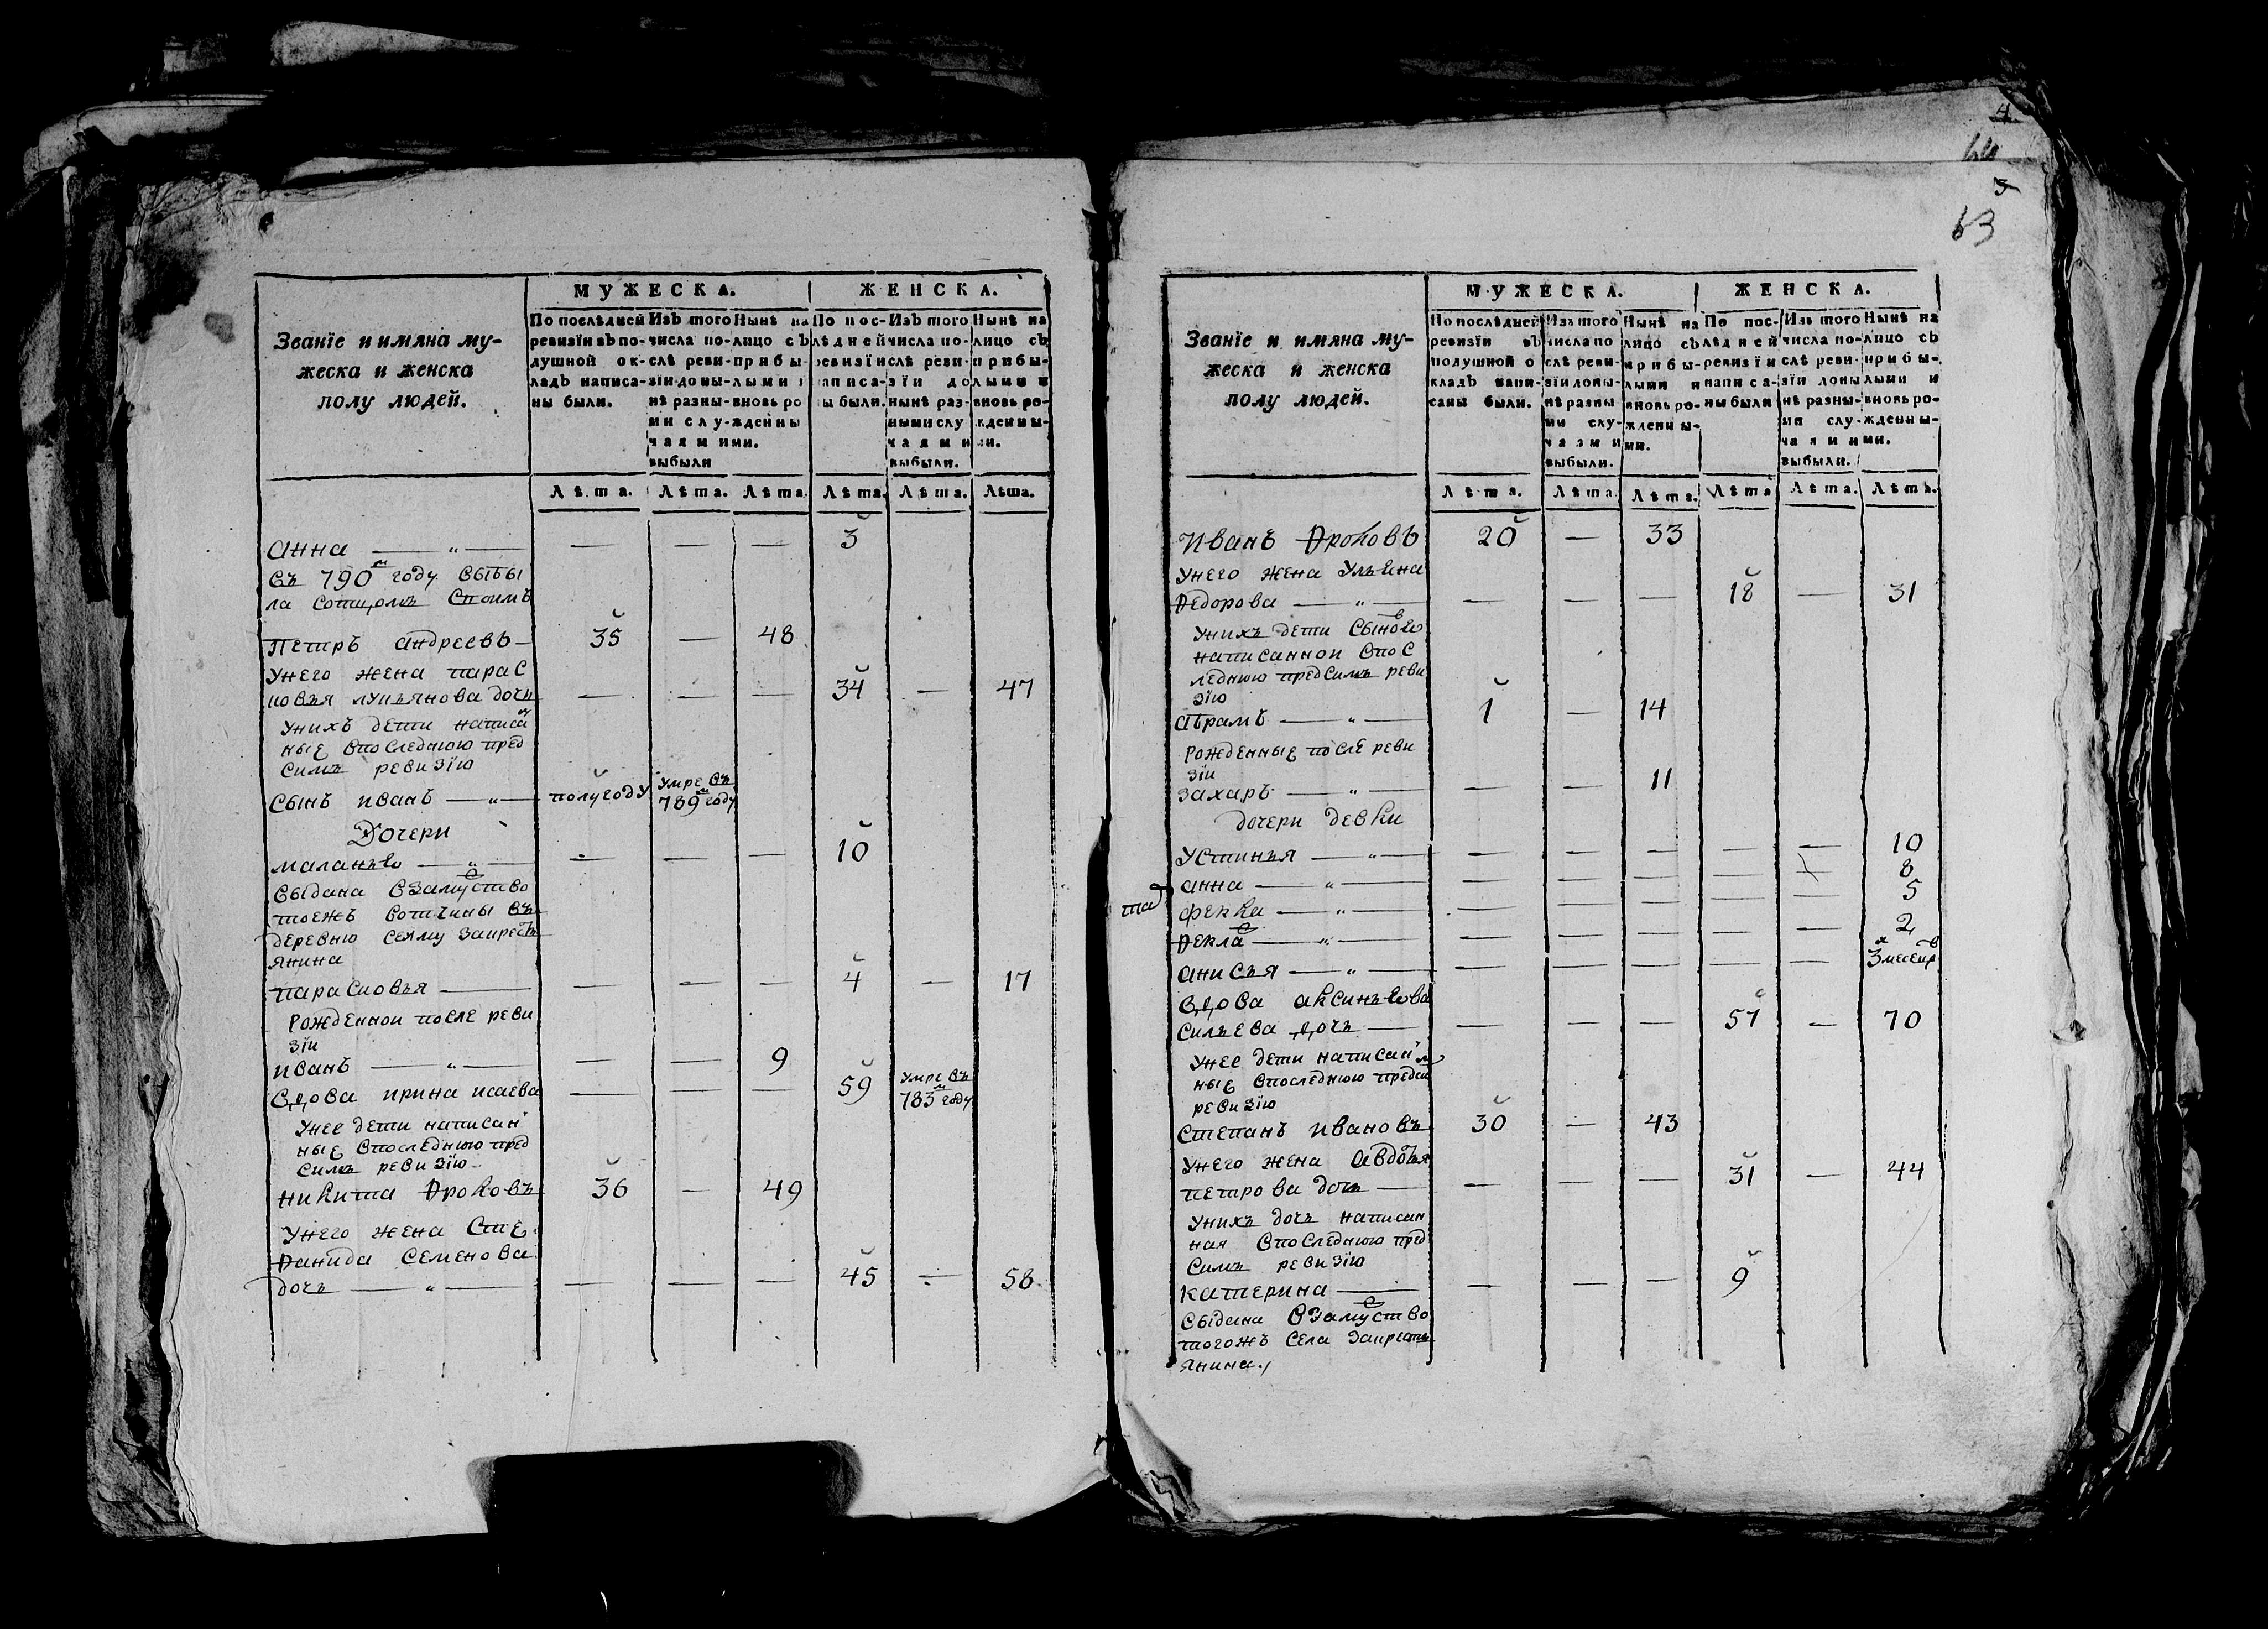 4
64
3
63
Званїе и имяна му-
жеска и женска
полу людей.
МУЖЕСКА.
ЖЕНСКА.
По послѣдней
ревизїи въ по-
душной ок-
ладъ написа-
ны были.
Изъ того
числа по-
слѣ реви-
зїи до ны-
нѣ разны-
ми слу-
чаями
выбыли
Нынѣ на
лицо съ
прибы-
лыми и
вновь ро
жденны
ми.
По пос-
лѣдней
ревизїи
написа-
ны были.
Изъ того
числа по-
слѣ реви-
зїи до
нынѣ раз-
ными слу
чаями
выбыли.
Нынѣ на
лицо съ
прибы-
лыми и
вновь ро-
жденны-
ми.
Лѣта. Лѣта. Лѣта Лѣта. Лѣта. Лѣта.
анна — „ — — — — 3
въ 790м году выбы
ла сотцомъ своимъ
Петръ андреевъ — 35 — 48
унего жена парас
ковья лукьянова дочь — — — 34 — 47
унихъ дети написан
ные впоследнюю пред
симъ ревизїю
сынъ иванъ — „ — полугоду умре въ
789м году
Дочери
маланья — „ — — — — 10
выдана взамуство
тоежъ вотчины въ
деревню сеяму закресть
янина
парасковья — — — — 4 — 17
рожденнои после реви
зїи
иванъ — „ — — — 9
вдова ирина исаева — — — 59 умре въ
783м году
унее дети написан
ные впоследнюю пред
симъ ревизїю
никита Ѳроловъ 36 — 49
унего жена сте
Ѳанида семенова
дочь — „ — — — — 45 — 58
Званїе и имяна му-
жеска и женска
полу людей.
МУЖЕСКА.
ЖЕНСКА.
По послѣдней
ревизїи въ
подушной о
кладъ напи-
саны были.
Изъ того
числа по
слѣ реви-
зїи доны-
нѣ разны
ми слу-
чаями
выбыли.
Нынѣ на
лицо съ
прибы-
лыми и
вновь ро-
жденны-
ми.
По пос-
лѣдней
ревизїи
написа-
ны были
Изъ того
числа по-
слѣ реви-
зїи доны
нѣ разны-
ми слу-
чаями
выбыли.
Нынѣ на
лицо съ
прибы-
лыми и
вновь ро-
жденны-
ми.
Лѣта. Лѣта Лѣта. Лѣта Лѣта. Лѣта.
иванъ Ѳроловъ 20 — 33
унего жена ульяна
Ѳедорова — „ — — — — 18 — 31
унихъ дети сыновья
написаннои впос
леднюю предсимъ реви
зїю
абрамъ — „ — 1 — 14
рожденные после реви
зїи
захаръ — „ — — — 11
дочери девки
устинья — „ — — — — — — 10
анна — „ — — — — — — 8
фекла — „ — — — — — — 5
Ѳекла — „ — — — — — — 2
анисья — „ — — — — — — 3х месецов
вдова аксинья ва
сильева дочь — — — — 57 — 70
унее дети написан
ные впоследнюю предсим
ревизїю
степанъ ивановъ 30 — 43
унего жена авдотья
петрова дочь — — — — 31 — 44
унихъ дочь написан
ная впоследнюю пред
симъ ревизїю
катерина — — — — 9
выдана взамуство
тогожъ села закресть
янина